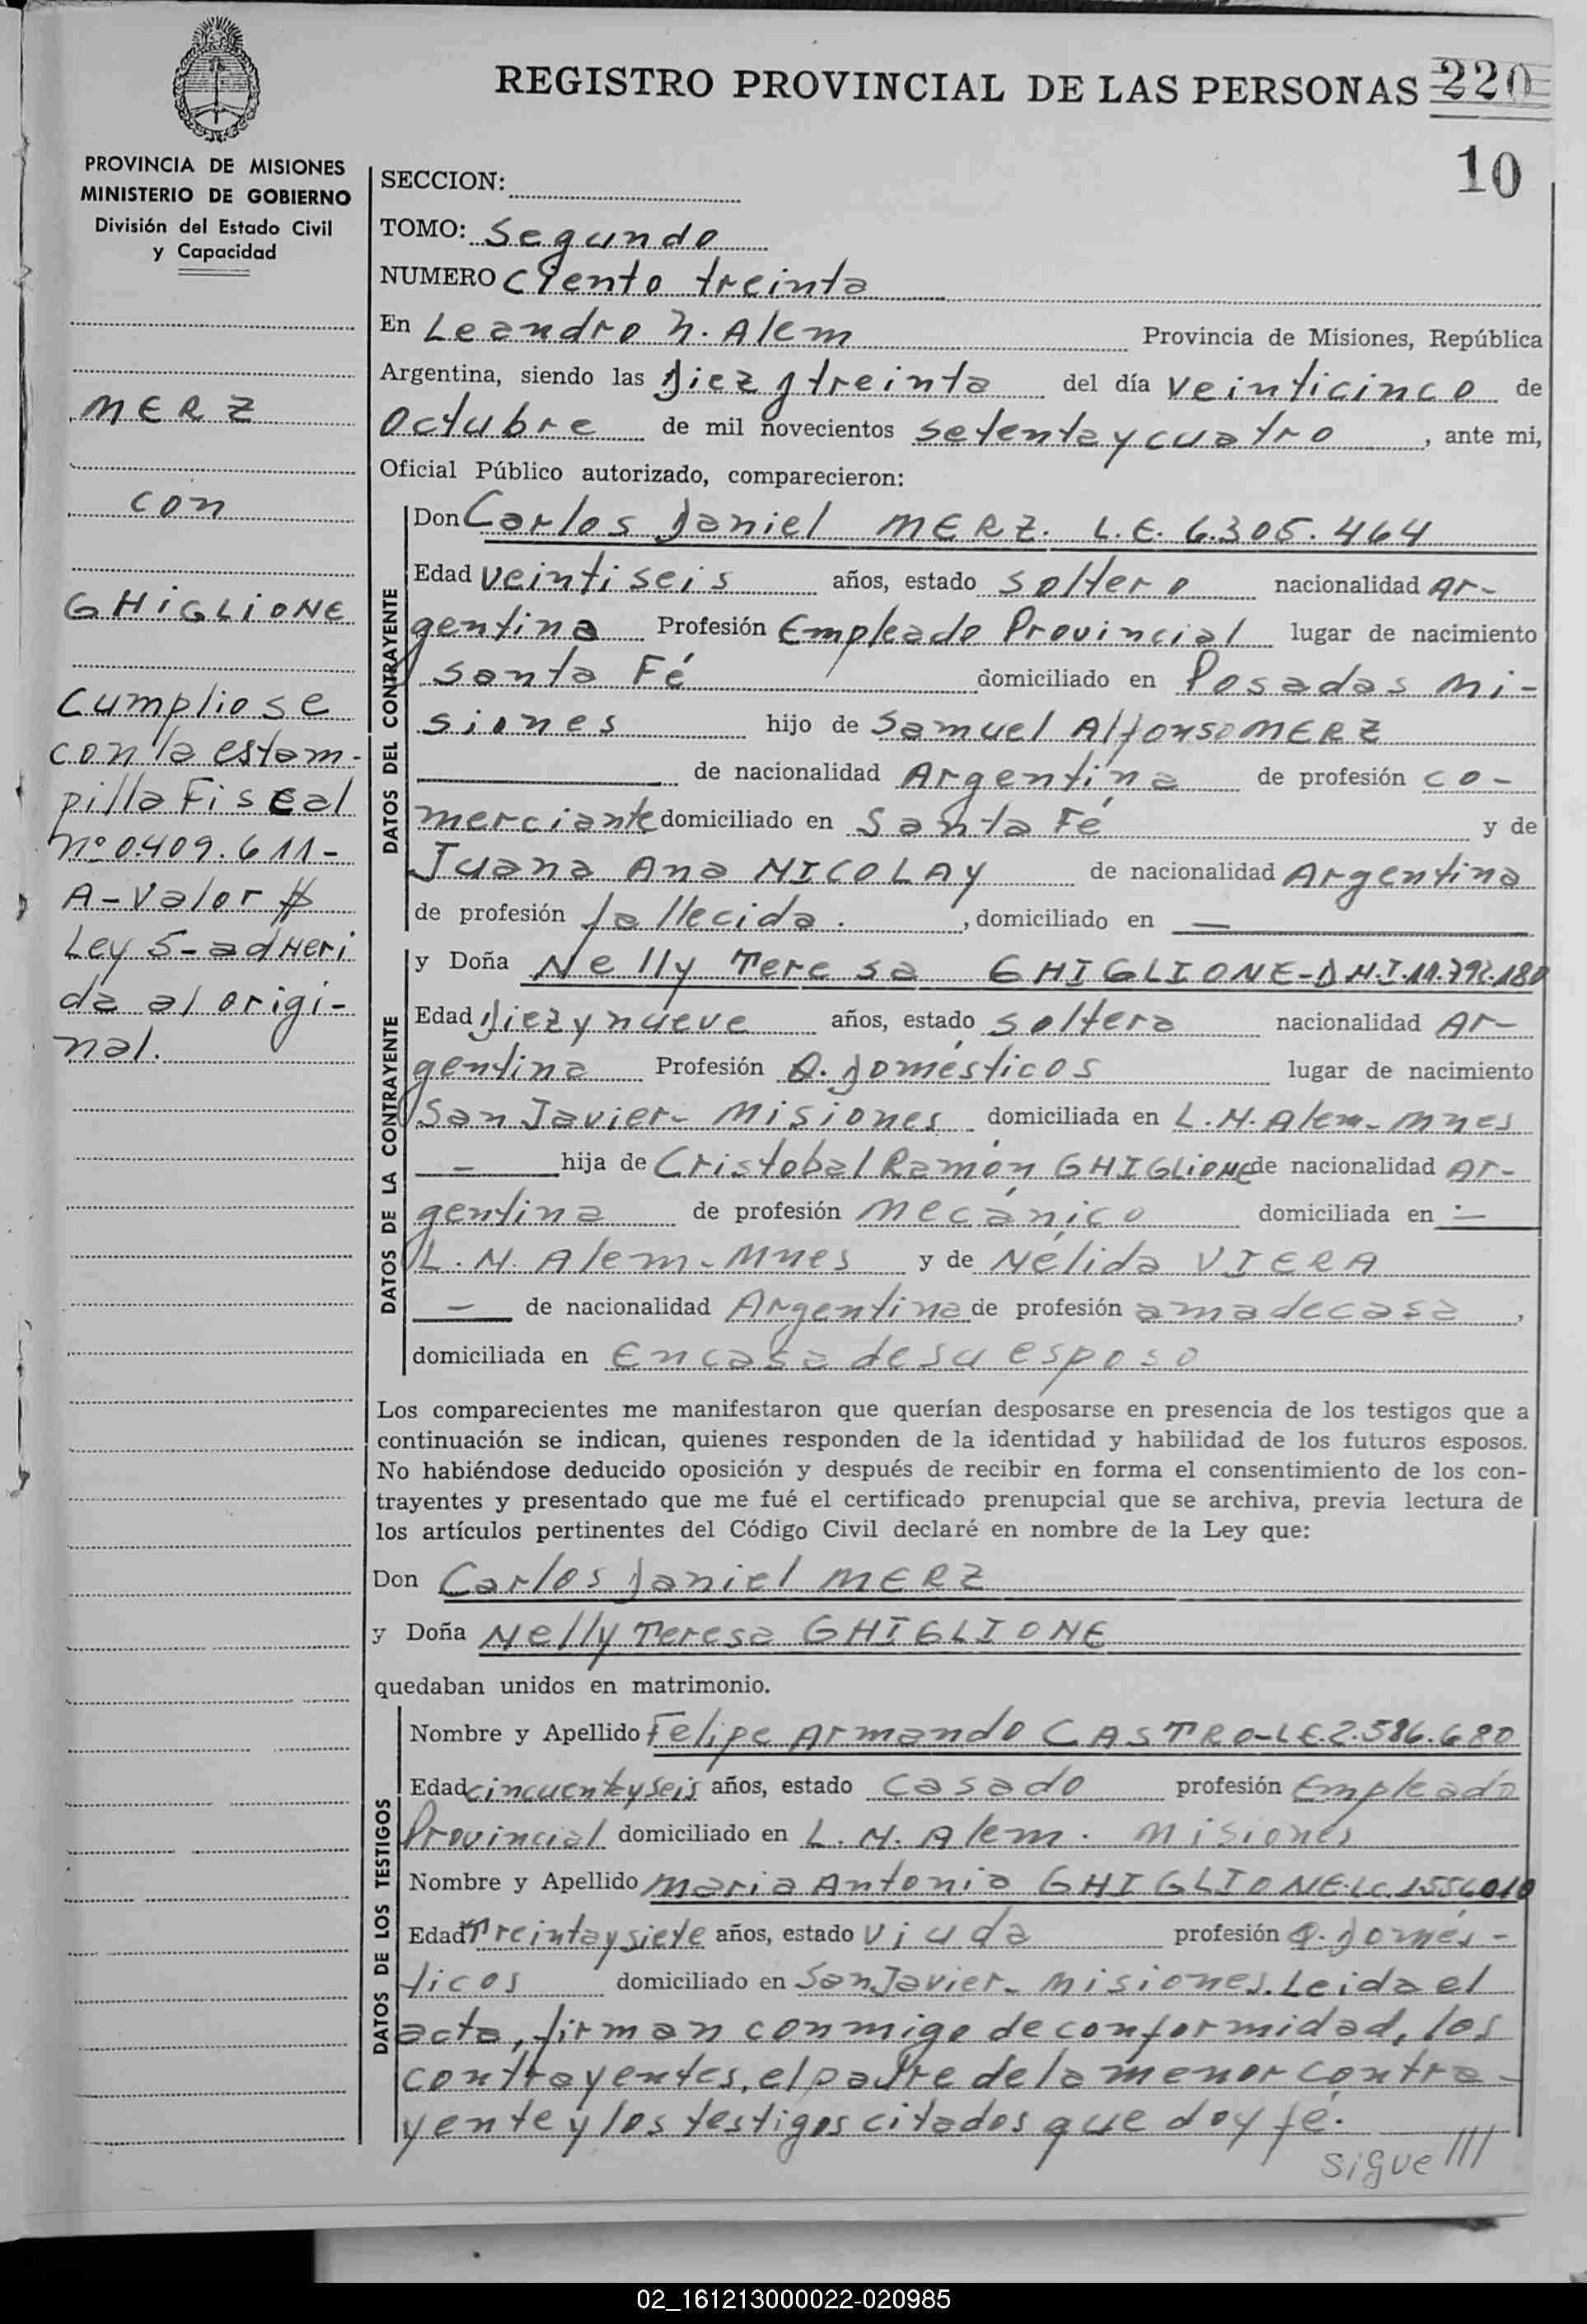 REGISTRO PROVINCIAL DE LAS PERSONAS 220
10
PROVINCIA DE MISIONES
MINISTERIO DE GOBIERNO
División del Estado Civil
y Capacidad
MERZ
con
GHIGLIONE
Cumpliose
con la estam-
pilla Fiscal
nº 0.409.611-
A-Valor $
Ley 5-adHeri
da al origi-
nal.
SECCION:
TOMO: Segundo
NUMERO Ciento treinta
En Leandro N. Alem Provincia de Misiones, República
Argentina, siendo las Diez y treinta del día veinticinco de
Octubre de mil novecientos setenta y cuatro, ante mi,
Oficial Público autorizado, comparecieron:
DATOS DEL CONTRAYENTE
Don Carlos Daniel MERZ. L.E. 6.305.464
Edad veintiseis años, estado soltero nacionalidad Ar-
gentina Profesión Empleado Provincial lugar de nacimiento
Santa Fé domiciliado en Posadas Mi-
siones hijo de Samuel Alfonso MERZ
de nacionalidad Argentina de profesión co-
merciante domiciliado en Santa Fé y de
Juana Ana NICOLAY de nacionalidad Argentina
de profesión fallecida. , domiciliado en —
DATOS DE LA CONTRAYENTE
y Doña Nelly Teresa GHIGLIONE-D.N.I.11.792.180
Edad Diez y nueve años, estado soltera nacionalidad Ar-
gentina Profesión Q. Domésticos lugar de nacimiento
San Javier- Misiones domiciliada en L.N. Alem- Mnes
— hija de Cristobal Ramón GHIGLIONE de nacionalidad Ar-
gentina de profesión Mecánico domiciliada en :—
L.N. Alem- Mnes y de Nélida VIERA
— de nacionalidad Argentina de profesión ama de casa ,
domiciliada en En casa de su esposo
Los comparecientes me manifestaron que querían desposarse en presencia de los testigos que a
continuación se indican, quienes responden de la identidad y habilidad de los futuros esposos.
No habiéndose deducido oposición y después de recibir en forma el consentimiento de los con-
trayentes y presentado que me fué el certificado prenupcial que se archiva, previa lectura de
los artículos pertinentes del Código Civil declaré en nombre de la Ley que:
Don Carlos Daniel MERZ
y Doña Nelly Teresa GHIGLIONE
quedaban unidos en matrimonio.
DATOS DE LOS TESTIGOS
Nombre y Apellido Felipe Armando CASTRO-L.E.2.586.680
Edad cincuentayseis años, estado casado profesión Empleado
Provincial domiciliado en L. N. Alem. Misiones
Nombre y Apellido Maria Antonia GHIGLIONE-LC.
Edad Treintaysiete años, estado Viuda profesión Q. Domés-
ticos domiciliado en San Javier- Misiones. Leida el
acta, firman conmigo de conformidad, los
contrayentes, el padre de la menor contra-
yente y los testigos citados que doy fé.
sigue///
02_161213000022-020985